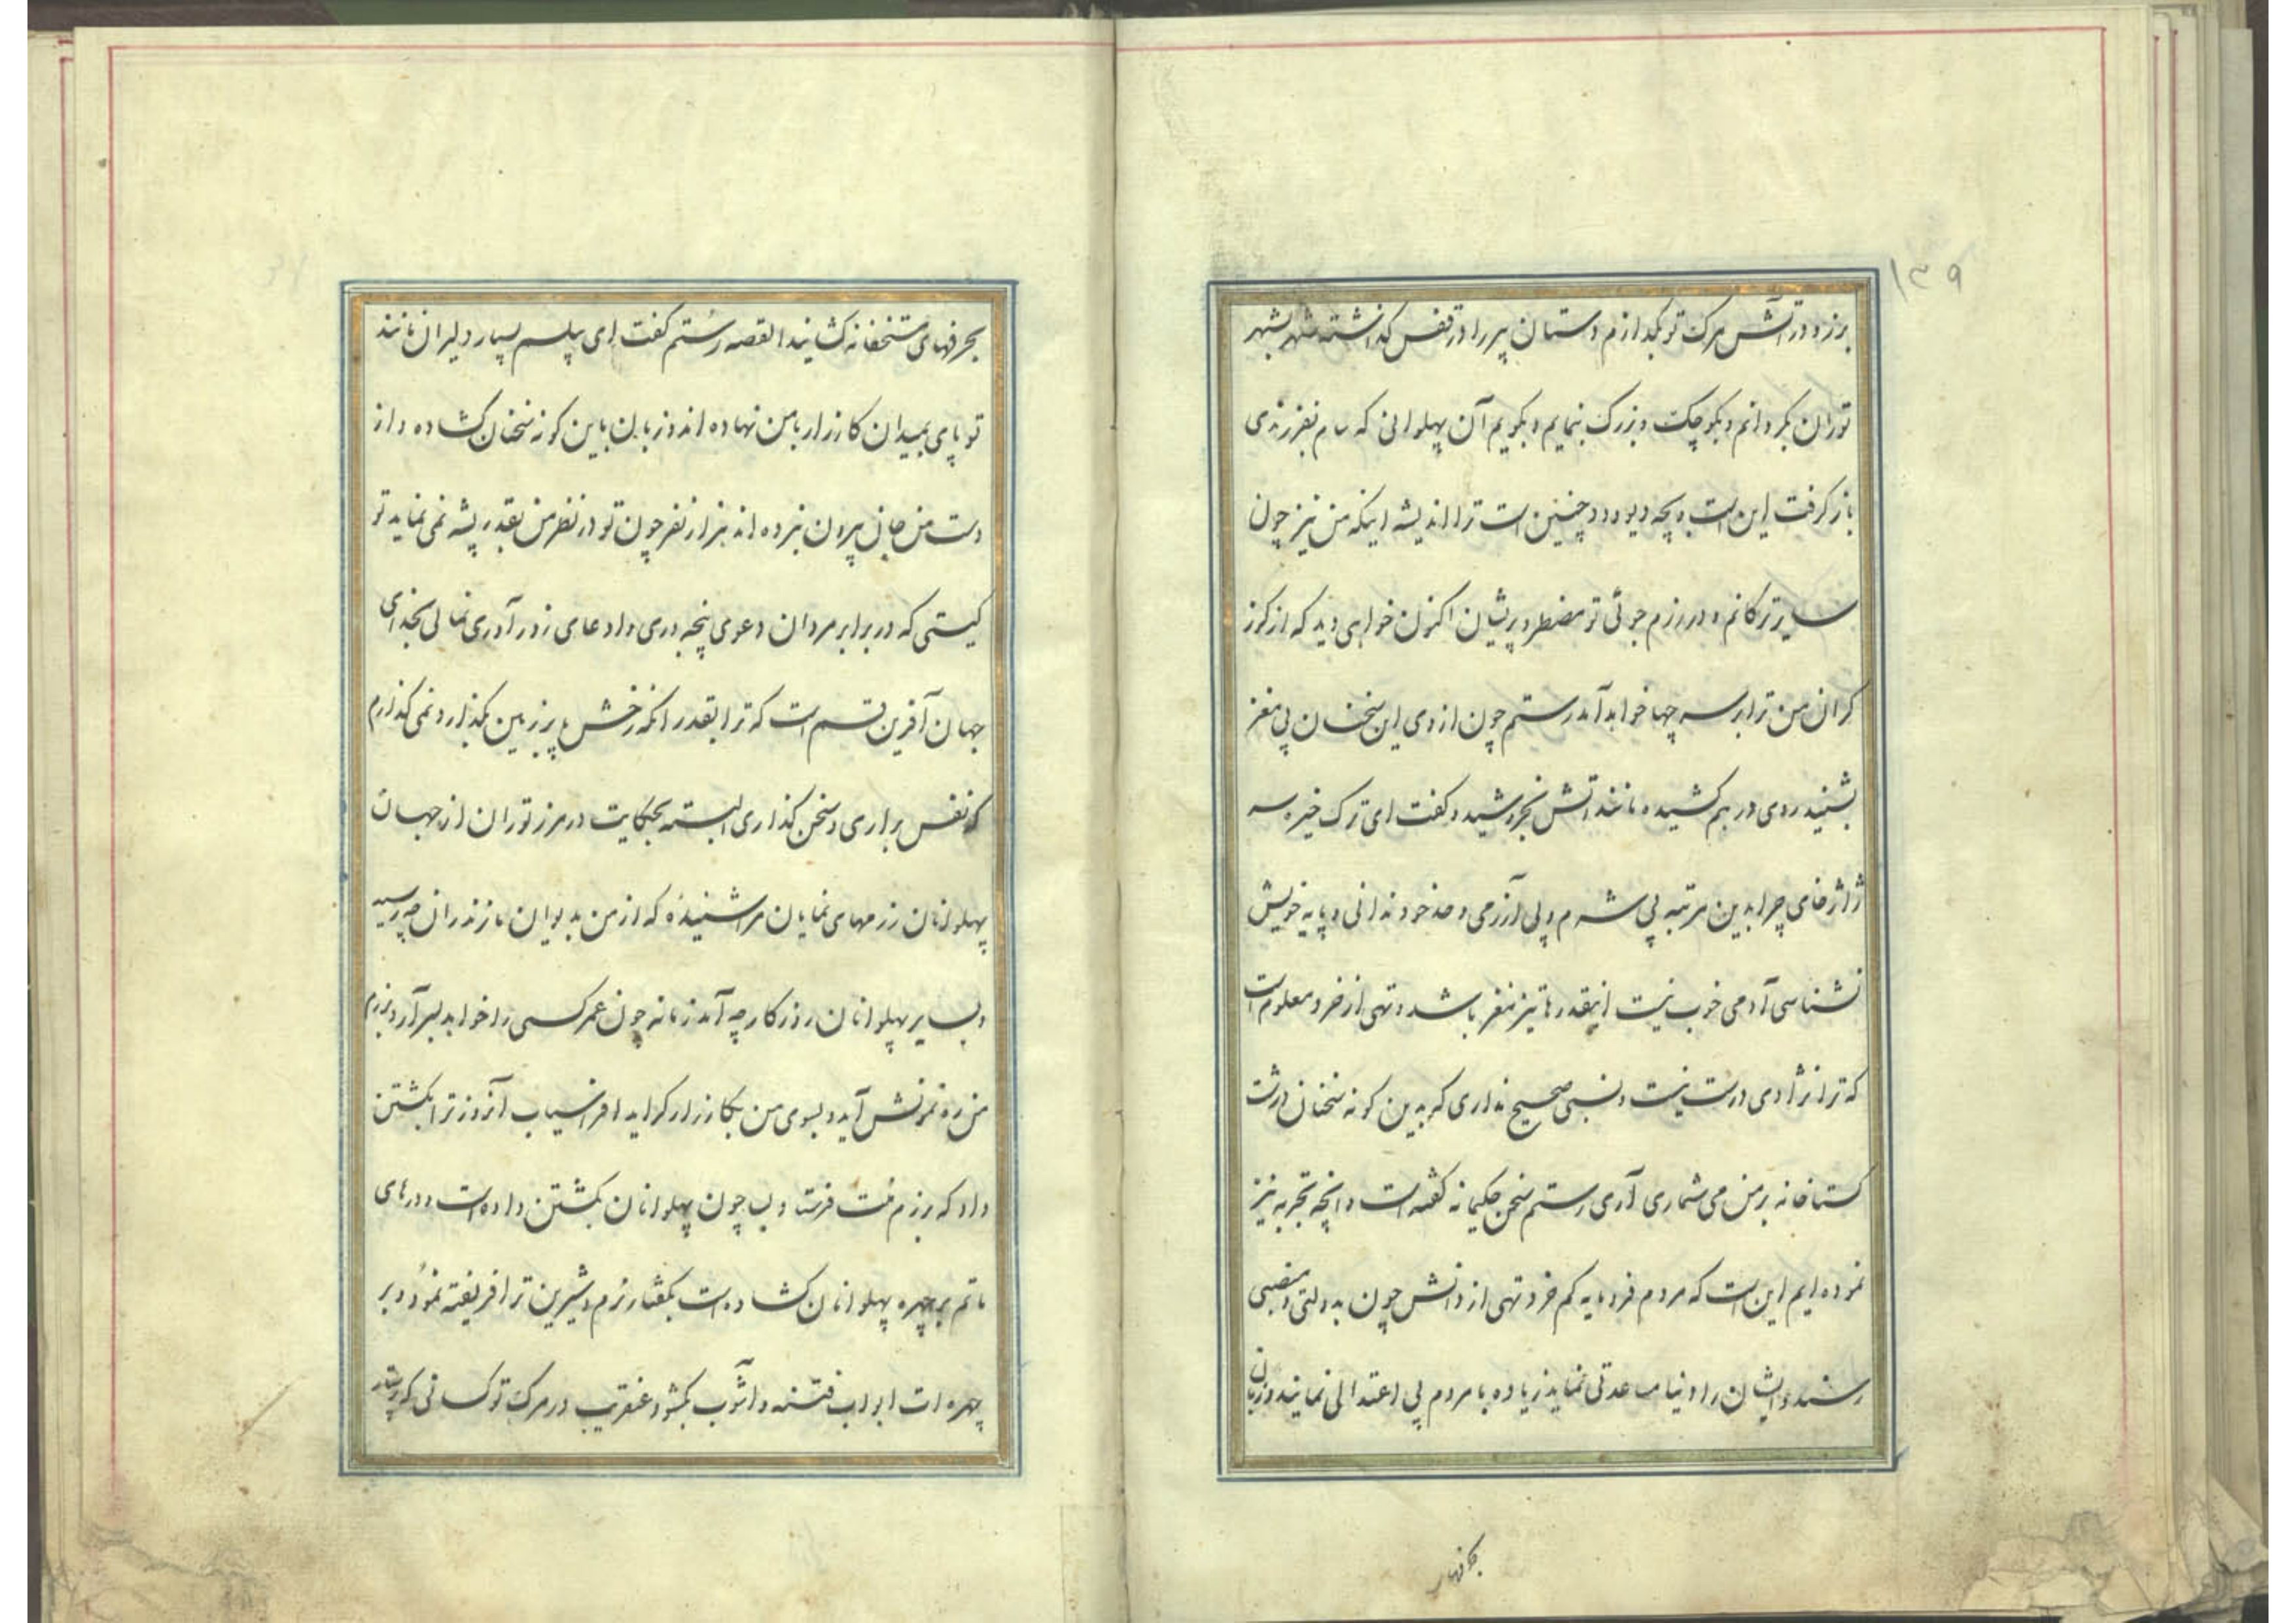 ۱۳۹
برزو در آتش مرک تو بکدازم دستان پیر را در قفس کذاشته شهر بشهر
توران بکردانم و بکوچک و بزرک بنمایم و بکویم آن پهلوانی که سام بفرزندی
باز کرفت این است و بچه دیو و دد چنین است ترا اندیشه اینکه من نیز چون
سایر ترکانم و در رزم جوئی تو مضطر و پریشان اکنون خواهی دید که از کرز
کران من ترا بر سر چها خواهد آمد رستم چون از وی این سخنان بی مغز
بشنید روی در هم کشیده مانند اتش بخروشید و کفت ای ترک خیره سر
ژاژخای چرا بدین مرتبه بی شرم و بی آزرمی و حد خود ندانی و پایه خویش
نشناسی آدمی خوب نیست اینقدرها تیز مغز باشد و تهی از خرد معلوم است
که ترا نژادی درست نیست و نسبی صحیح نداری که بدین کونه سخنان درشت
کستاخانه بر من می شماری آری رستم سخن حکیمانه کفته است و انچه تجربه نیز
نموده ایم این است که مردم فرومایه کم خرد و تهی از دانش چون بدولتی و منصبی
رسند و ایشان را دنیا مساعدتی نماید زیاده با مردم بی اعتدالی نمایند و زبان
بحرفهای
بحرفهای سخیفانه کشایند القصه رستم کفت ای پیلسم بسیار دلیران مانند
تو پای بمیدان کارزار با من نهاده اند و زبان باین کونه سخنان کشاده و از
دست من جان بیرون نبرده اند هزار نفر چون تو در نظر من بقدر پشه نمی نماید تو
کیستی که در برابر مردان دعوی پنجه وری و ادعای زورآوری نمائی بخدای
جهان آفرین قسم است که ترا بقدر انکه رخش پا بر زمین بکذارد نمی کذارم
که نفس براری و سخن کذاری البته بحکایت در مرز توران از جهان
پهلوانان رزمهای نمایان مرا شنیدهٔ که از من بدیوان مازندران چه رسید
و بسایر پهلوانان روزکار چه آمد زمانه چون عمر کسی را خواهد بسر آرد برزم
من ره نمونش آید و بسوی من بکارزار کراید افراسیاب آنروز ترا بکشتن
داد که برزم منت فرستاد و بسا چون پهلوانان بکشتن داده است و درهای
ماتم بر چهره پهلوانان کشاده است بکفتار نرم و شیرین ترا فریفته نمود و بر
چهره ات ابواب فتنه و آشوب بکشود عنقریب در مرک تو کسانی که